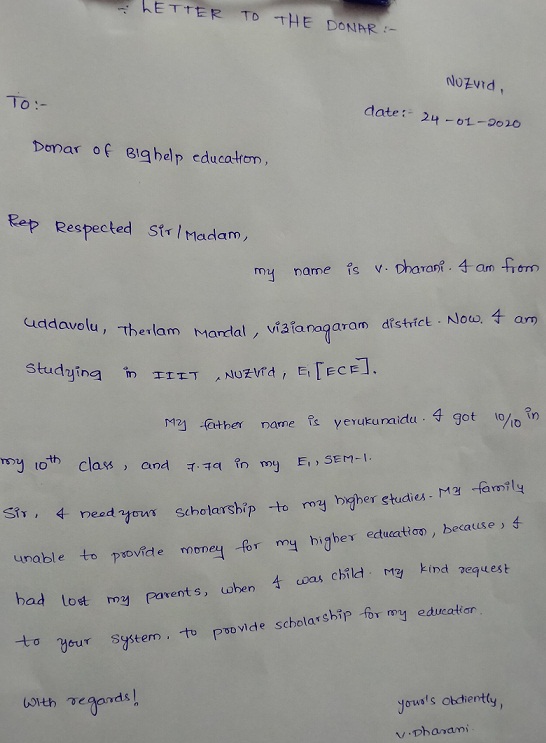 :- LETTER TO THE DONAR :-
Nuzvid,
To:-
date:- 24-01-2020
Donar of Bighelp education,
Rep Respected Sir/Madam,
my name is V. Dharani. I am from
Uddavolu, Therlam Mandal, vizianagaram district. Now, I am
Studying in IIIT, NUZVid, E1 [ECE].
My father name is yerukunaidu. I got 10/10 in
my 10th class, and 7.79 in my E1, SEM-1.
Sir, I need your scholarship to my higher studies. My family
unable to provide money for my higher education, because, I
had lost my parents, when I was child. My kind request
to your system, to provide scholarship for my education.
With regards!
your's obdiently,
V. Dharani